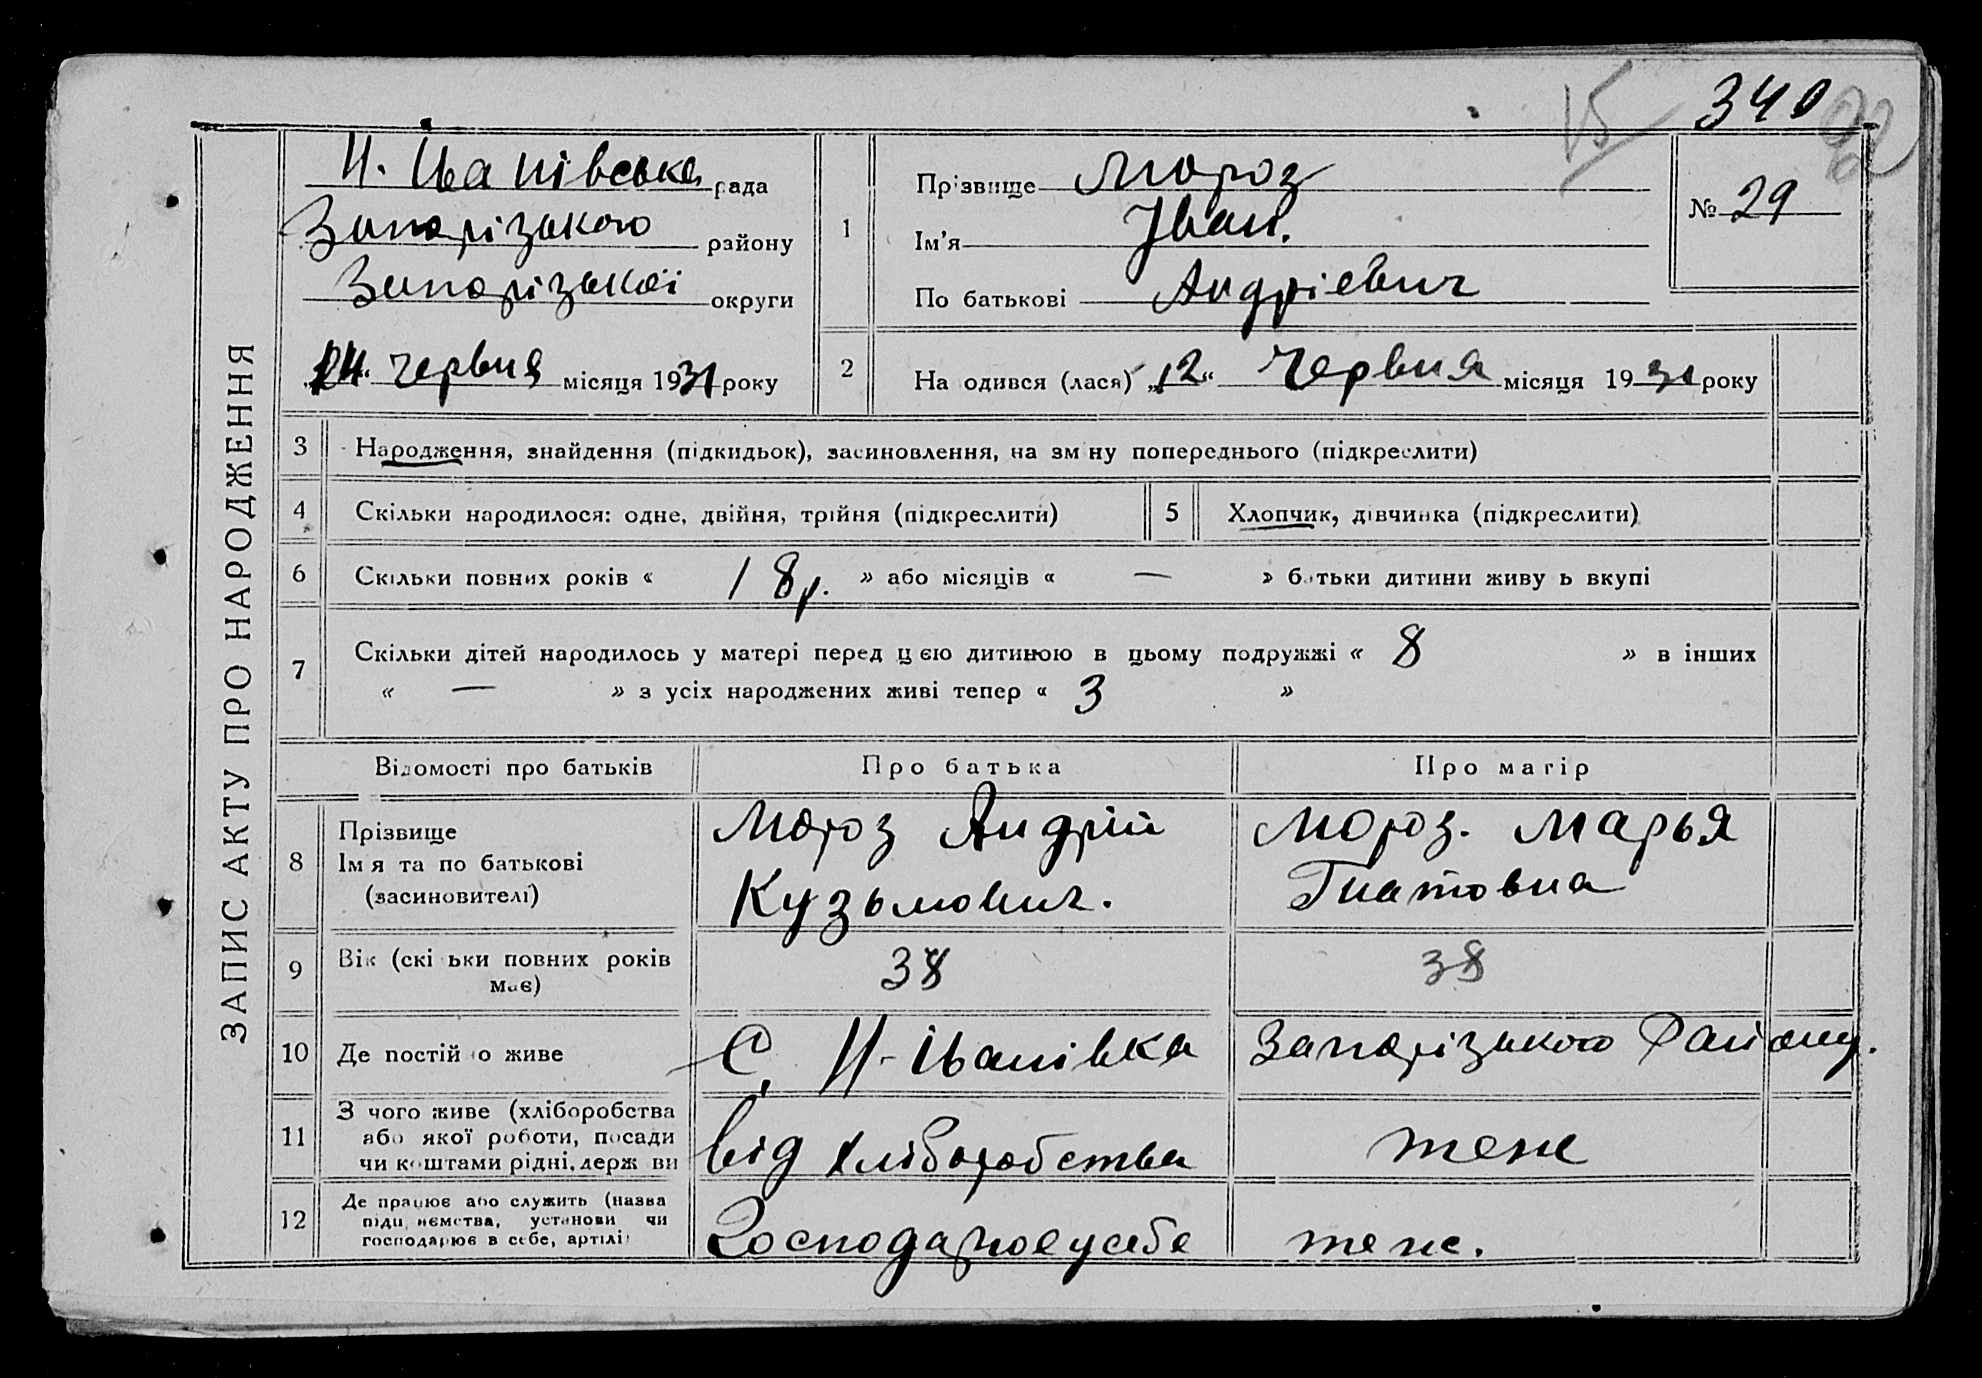 15 340
Н. Іванівська рада
Запорізького району
Запорізької округи
„14“ червня місяця 1931 року
ЗАПИС АКТУ ПРО НАРОДЖЕННЯ
1 Прізвище Мороз
Ім'я Іван.
По батькові Андрієвич
№ 29
2 На одився (лася) „12“ Червня місяця 19 року
3 Народження, знайдення (підкидьок), засиновлення, на зм ну попереднього (підкреслити)
4 Скільки народилося: одне, двійня, трійня (підкреслити) 5 Хлопчик, дівчинка (підкреслити)
6 Скільки повних років « 18 р. » або місяців « — » батьки дитини живу ь вкупі
7 Скільки дітей народилось у матері перед цією дитиною в цьому подружжі « 8 » в інших
« — » з усіх народжених живі тепер « 3 »
Відомості про батьків Про батька Про матір
8 Прізвище Мороз Андрій Мороз. Марья
Імя та по батькові Кузьмович. Гнатовна
(засиновителі)
9 Вік (скі ьки повних років 38 38
має)
10 Де постій о живе С. Н-Іванівка Запорізького Району.
11 З чого живе (хліборобства
або якої роботи, посади від хліборобства теже
чи коштами рідні, держ ви
12 Де працює або служить (назва
підп иємства, установи чи Господарює у себе теже.
господарює в себе, артілі)